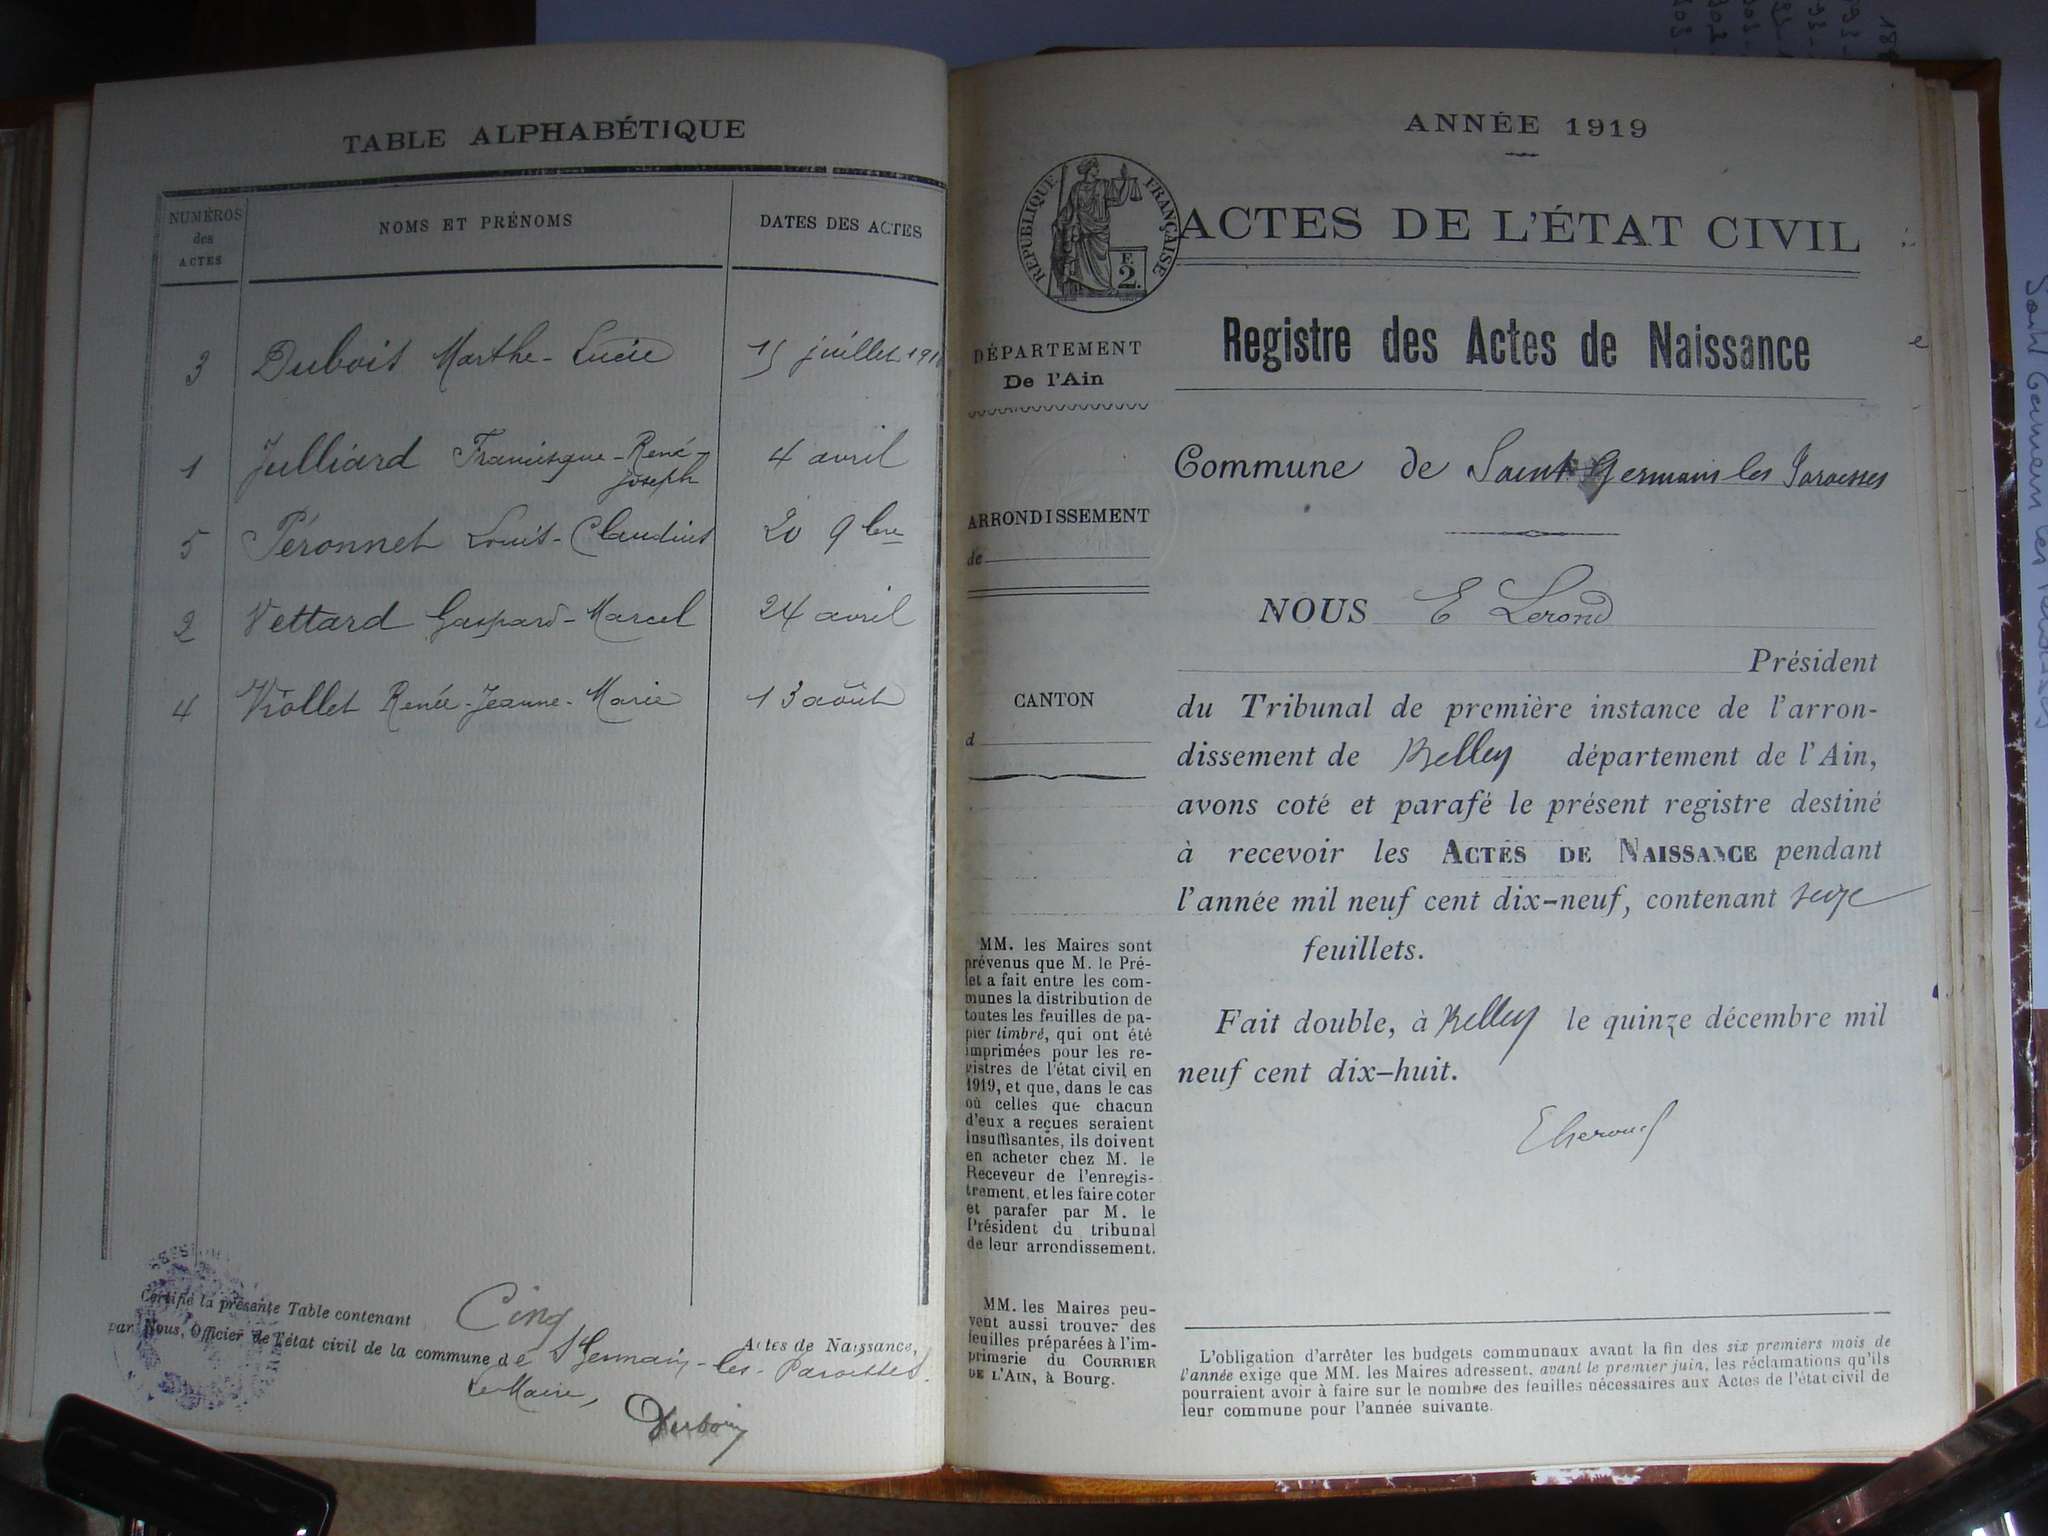 TABLE ALPHABÉTIQUE
NUMÉROS des ACTES
NOMS ET PRÉNOMS
DATES DES ACTES
3 Dubois Marthe-Lucie 15 juillet 191
1 Julliard Francisque-René-
Joseph 4 avril
5 Péronnet Louis-Claudius 20 9bre
2 Vettard Gaspard-Marcel 24 avril
4 Viollet Renée-Jeanne-Marie 13 août
Certifié la présente Table contenant Cinq Actes de Naissance,
par Nous, Officier de l'état civil de la commune de St Germain-les-Paroisses.
Le Maire,
Dubois
ANNÉE 1919
RÉPUBLIQUE FRANÇAISE
F.
2.
ACTES DE L'ÉTAT CIVIL
DÉPARTEMENT
De l'Ain
Registre des Actes de Naissance
Commune de Saint Germain les Paroisses
ARRONDISSEMENT
de
CANTON
d
NOUS E Lerond
Président
du Tribunal de première instance de l'arron-
dissement de Belley département de l'Ain,
avons coté et parafé le présent registre destiné
à recevoir les ACTES DE NAISSANCE pendant
l'année mil neuf cent dix-neuf, contenant seize
feuillets.
Fait double, à Belley le quinze décembre mil
neuf cent dix-huit.
ELerond
MM. les Maires sont
prévenus que M. le Pré-
fet a fait entre les com-
munes la distribution de
toutes les feuilles de pa-
pier timbré, qui ont été
imprimées pour les re-
gistres de l'état civil en
1919, et que, dans le cas
où celles que chacun
d'eux a reçues seraient
insuffisantes, ils doivent
en acheter chez M. le
Receveur de l'enregis-
trement, et les faire coter
et parafer par M. le
Président du tribunal
de leur arrondissement.
MM. les Maires peu-
vent aussi trouver des
feuilles préparées à l'im-
primerie du COURRIER
DE L'AIN, à Bourg.
L'obligation d'arrêter les budgets communaux avant la fin des six premiers mois de
l'année exige que MM. les Maires adressent, avant le premier juin, les réclamations qu'ils
pourraient avoir à faire sur le nombre des feuilles nécessaires aux Actes de l'état civil de
leur commune pour l'année suivante.
Saint Germain les Paroisses